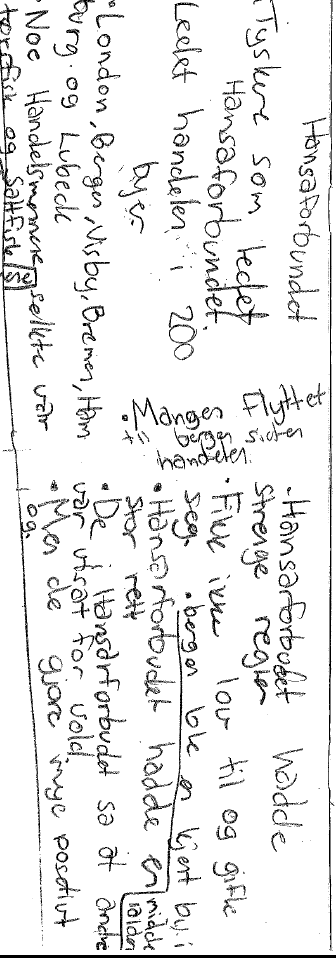 Hansaforbundet
Tyskere som ledet
Hansaforbundet.
Ledet handelen i 200
byer
• London, Bergen, Visby, Bremen, Ham
burg og Lubeck
• Noe Handelsmennene sellete var
tørrfisk og saltfisk
Flyttet
Manges
bergen
handelen
• Hansaforbodet hadde
strenge regler
• Fikk ikke lov til og gifte
seg. • bergen ble en kjent by i
middelalderen
• Hansarforbudet hadde en
Stor rett
• De i Hansarforbudet sa at andre
var utsatt for vold
• Men de gjore mye posetivt
og.